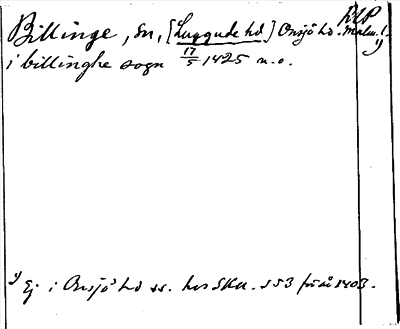 RAP
Billinge, sn, [Luggude hd] Onsjö hd. Malm. l. 1)
i billinghe sogn 17/5 1425 u.o.
1) Ej i Onsjö hd ss. hos SRU. s 53 från 1403.